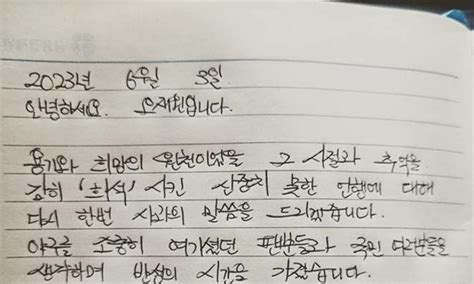 2023년 6월 3일.
안녕하세요. 오재원입니다.
용기와 희망의 원천이었을 그 시절과 추억을
감히 '희석' 시킨 신중치 못한 언행에 대해
다시 한번 사과의 말씀을 드리겠습니다.
야구를 소중히 여기셨던 팬분들과 국민 여러분들을
생각하며 반성의 시간을 가졌습니다.